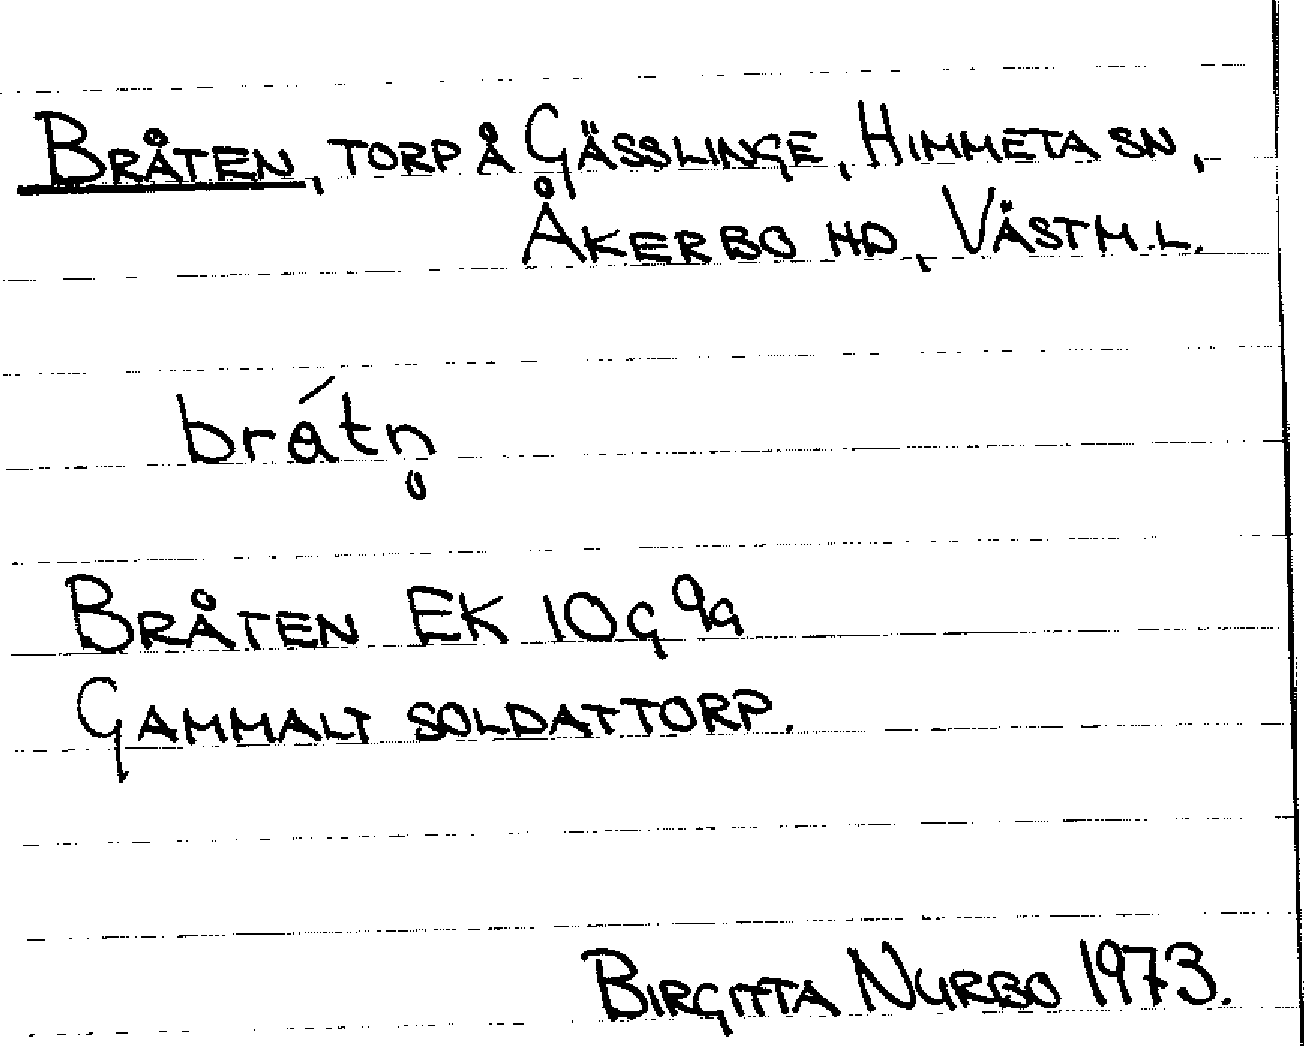 BRÅTEN, TORP Å GÄSSLINGE, HIMMETA SN,
ÅKERBO HD, VÄSTM. L.
brátn̥
BRÅTEN EK 10G 9a
GAMMALT SOLDATTORP.
BIRGITTA NURBO 1973.